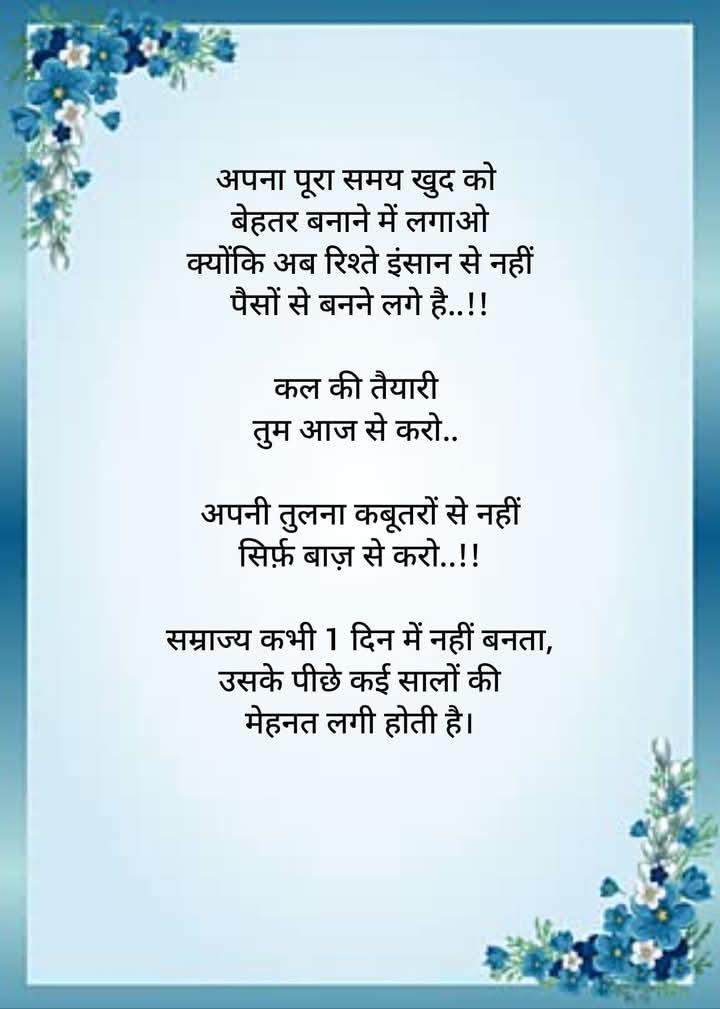 अपना पूरा समय खुद को
बेहतर बनाने में लगाओ
क्योंकि अब रिश्ते इंसान से नहीं
पैसों से बनने लगे है..!!
कल की तैयारी
तुम आज से करो..
अपनी तुलना कबूतरों से नहीं
सिर्फ़ बाज़ से करो..!!
सम्राज्य कभी 1 दिन में नहीं बनता,
उसके पीछे कई सालों की
मेहनत लगी होती है।